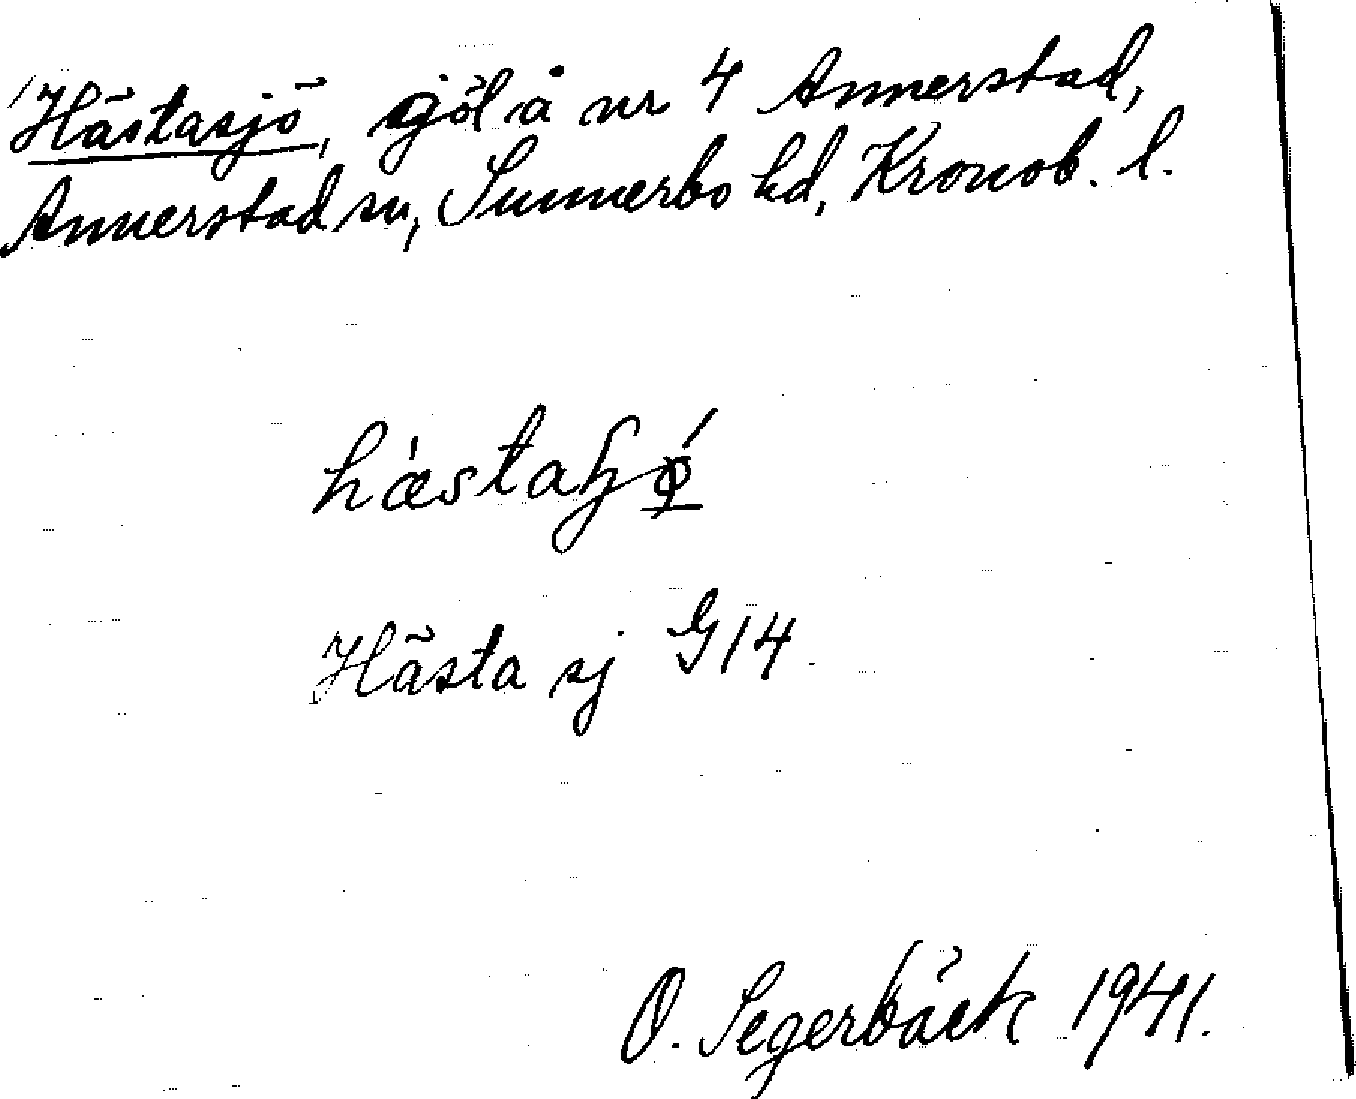 Hästasjö, göl å nr 4 Annerstad,
Annerstad sn, Sunnerbo hd, Kronob. l.
Hästa sj G 14
O. Segerbäck 1941.